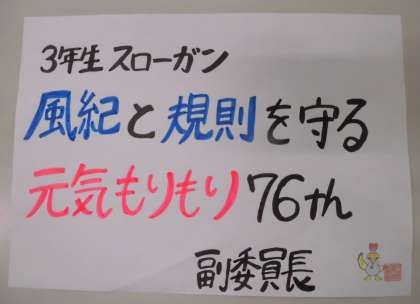 3年生 スローガン
風紀と規則を守る
元気もりもり76th
副委員長